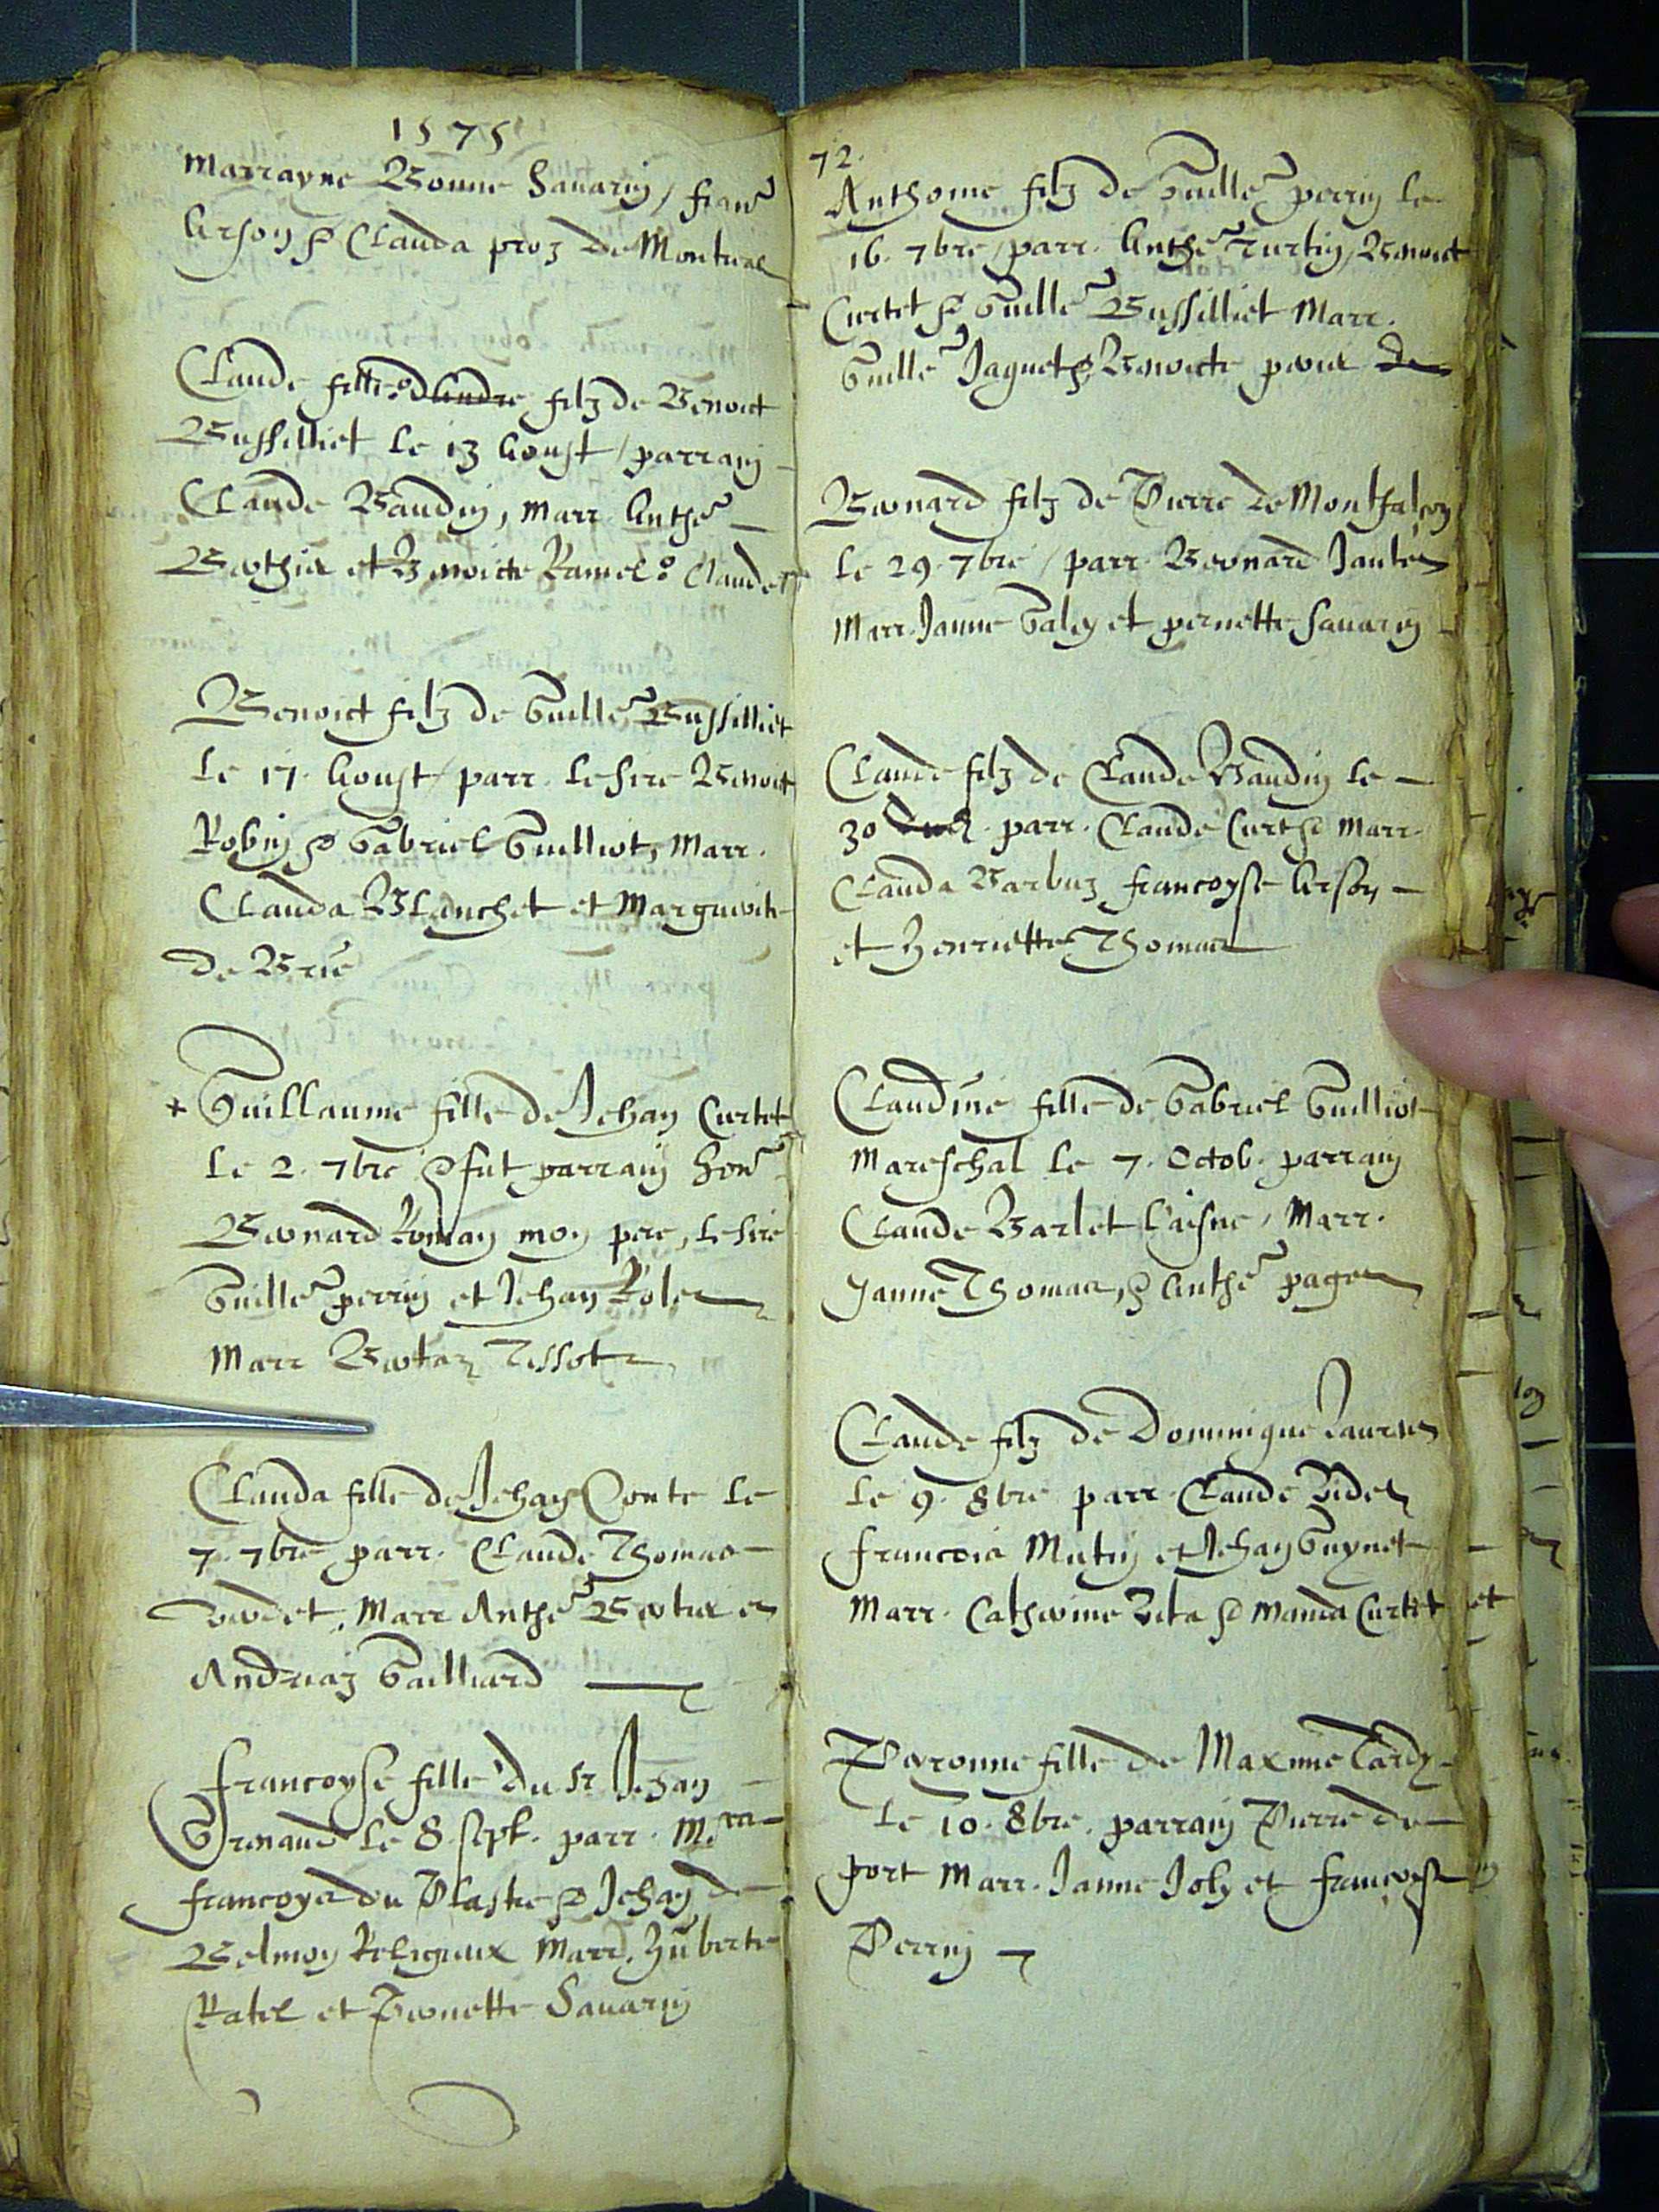 1575
Marrayne Bonne Savarin / Fran
Arson & Clauda proz de Montreal
Claude fille dAndre filz de Benoict
Bussilliet le 13 Aoust / parrain
Claude Baudin, Marr. Anthe
Berthier et Benoicte Ramel Claude
Benoict filz de Guille Bussilliet
Le 17. Aoust / parr. le sire Benoict
Robin & Gabriel Guilliot, Marr.
Clauda Blanchet et Marguerite
de Brie
+ Guillaume fille de Jehan Curtet
Le 2. 7bre & fut parrain hon
Bernard Roman mon pere, le sire
Guille perrin et Jehan Rolet
Marr Tissot
Clauda fille de Jehan Conte Le
7. 7bre parr. Claude Thomas
Marr Anthe
Andriaz Gailliard
Francoyse fille du Sr Jehan
Grenaud Le 8 sept. parr. M.
Francoys du Plastre & Jehan de
Belmon Religieux Marr. Huberte
Ratel et Pernette Savarin
72.
Anthoine filz de Guille perrin le
16. 7bre / parr. Anthe Curtin / Benoict
Curtet & Guille Bussilliet Marr.
Guille Jaquet & Benoicte de
Bernard filz de Pierre de Montfalcon
le 29. 7bre / parr. Bernard
Marr. Janne Galey et pernette Savarin
Claude filz de Claude Baudin le
30 parr. Claude Curt & Marr.
Clauda Barbuz francoyse Arson
et Henriette Thomas
Claudine fille de Gabriel Guilliot
Mareschal le 7. Octob. parrain
Claude Barlet l'aisne, Marr.
Janne Thomas, & Anthe pages
Claude filz de Dominique
Le 9. 8bre parr. Claude Bidet
francois Mutin et Jehan Guynet
Marr. Catherine & Mania Curtet
Perronne fille de Maxime Tardy
Le 10. 8bre. parrain Pierre du
port Marr. Janne Joly et francoyse
Perrin